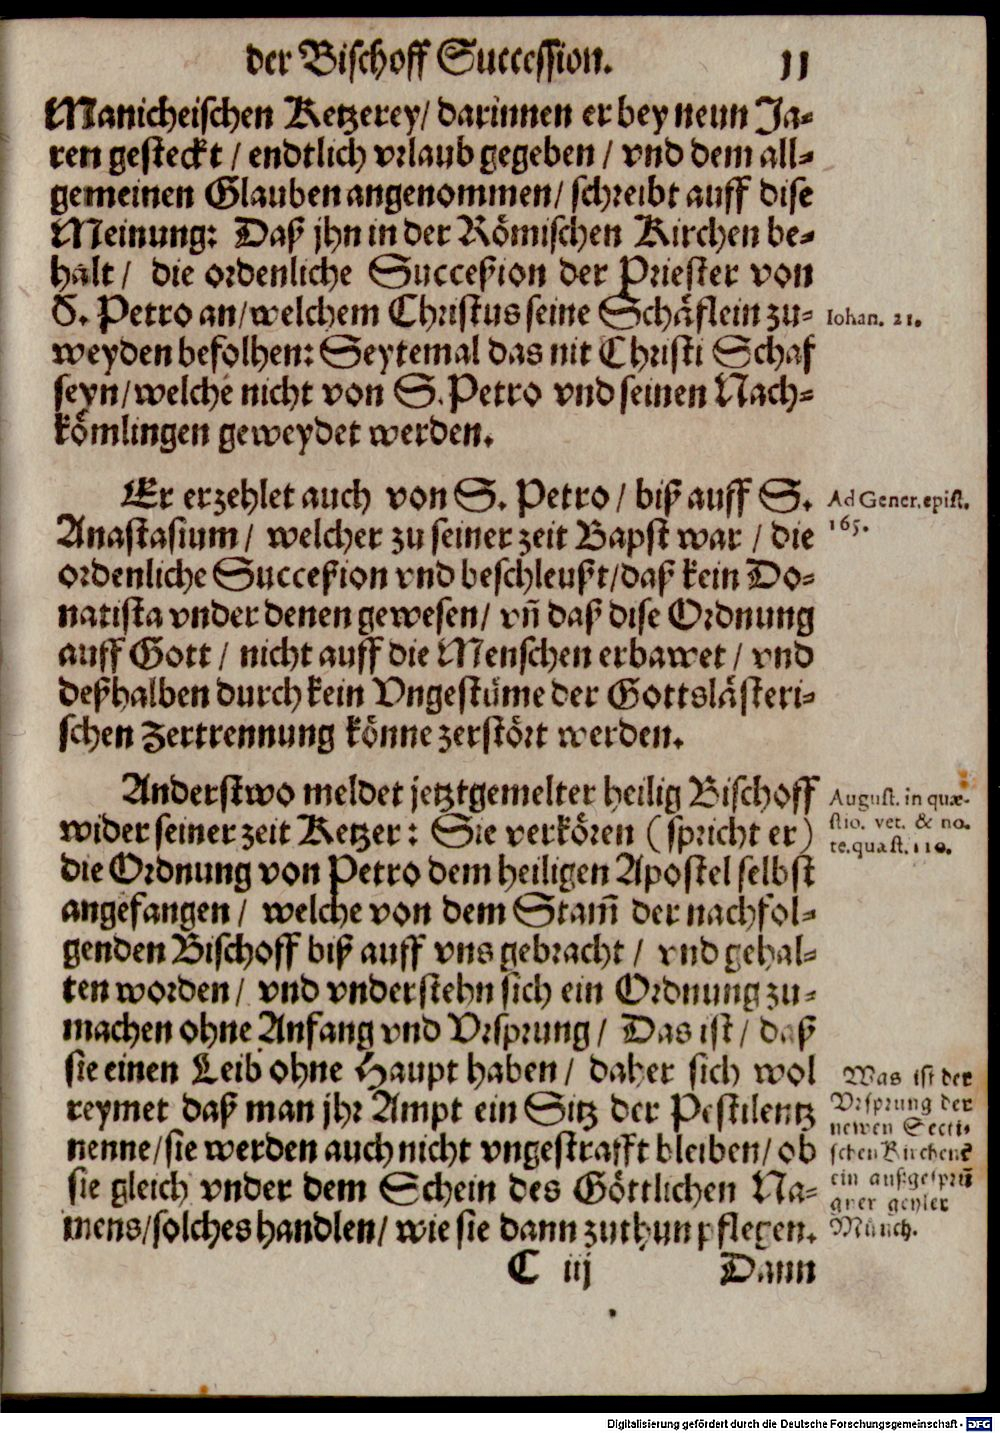 der Bischoff Succession. 11
Manicheischen Ketzerey/ darinnen er bey neun Ja-
ren gesteckt / endtlich vrlaub gegeben / vnd dem all-
gemeinen Glauben angenommen/ schreibt auff dise
Meinung: Daß jhn in der Römischen Kirchen be-
halt / die ordenliche Succeßion der Priester von
S. Petro an/welchem Christus seine Schäflein zu-
Iohan. 21.
weyden befolhen: Seytemal das nit Christi Schaf
seyn/welche nicht von S. Petro vnd seinen Nach-
kömlingen geweydet werden.
Er erzehlet auch von S. Petro / biß auff S.
Ad Gener. epist.
165.
Anastasium / welcher zu seiner zeit Bapst war / die
ordenliche Succeßion vnd beschleußt/daß kein Do-
natista vnder denen gewesen/ vñ daß dise Ordnung
auff Gott / nicht auff die Menschen erbawet / vnd
deßhalben durch kein Vngestüme der Gottslästeri-
schen Zertrennung könne zerstört werden.
Anderstwo meldet jetztgemelter heilig Bischoff
August. in quæ-
stio. vet. & no.
te. quæst. 110.
wider seiner zeit Ketzer: Sie verkören (spricht er)
die Ordnung von Petro dem heiligen Apostel selbst
angefangen / welche von dem Stam̃ der nachfol-
genden Bischoff biß auff vns gebracht / vnd gehal-
ten worden / vnd vnderstehn sich ein Ordnung zu-
machen ohne Anfang vnd Vrsprung / Das ist / daß
sie einen Leib ohne Haupt haben / daher sich wol
Was ist der
Vrsprung der
newen Secti-
schen Kirchen?
ein außgesprũ
gner geyler
Münch.
reymet daß man jhr Ampt ein Sitz der Pestilentz
nenne/sie werden auch nicht vngestrafft bleiben/ ob
sie gleich vnder dem Schein des Göttlichen Na-
mens/solches handlen/ wie sie dann zuthun pflegen.
C iij Dann
Digitalisierung gefördert durch die Deutsche Forschungsgemeinschaft - DFG